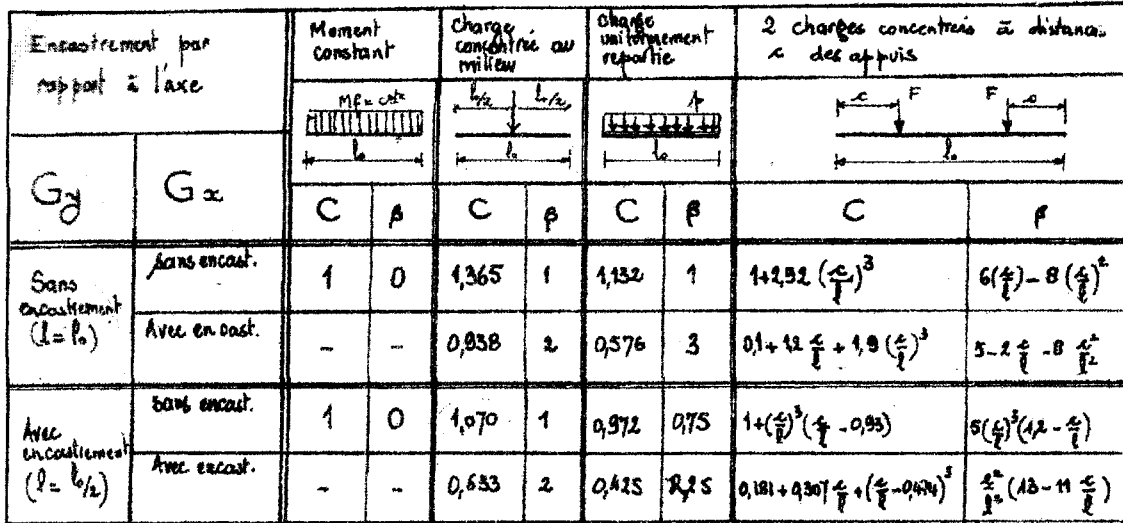 Encastrement par
rapport à l'axe
Moment
constant
Charge
concentrée au
milieu
charge
uniformement
repartie
2 charges concentreis à distance
c des appuis
Mf = cste
l₀
l₀/2 l₀/2
l₀
p
l₀
c F F c
l₀
Gy Gx C β C β C β C β
Sans
encastrement
(l = l₀)
sans encast. 1 0 1,365 1 1,132 1 1+2,92 (c/l)³ 6(c/l) - 8 (c/l)²
Avec encast. - - 0,938 2 0,576 3 0,1 + 1,2 c/l + 1,9 (c/l)³ 5 - 2 c/l - 8 c²/l²
Avec
encastrement
(l = l₀/2)
sans encast. 1 0 1,070 1 0,972 0,75 1+(c/l)³(c/l - 0,93) 5(c/l)³(1,2 - c/l)
Avec encast. - - 0,633 2 0,425 c²/l² (13 - 11 c/l)